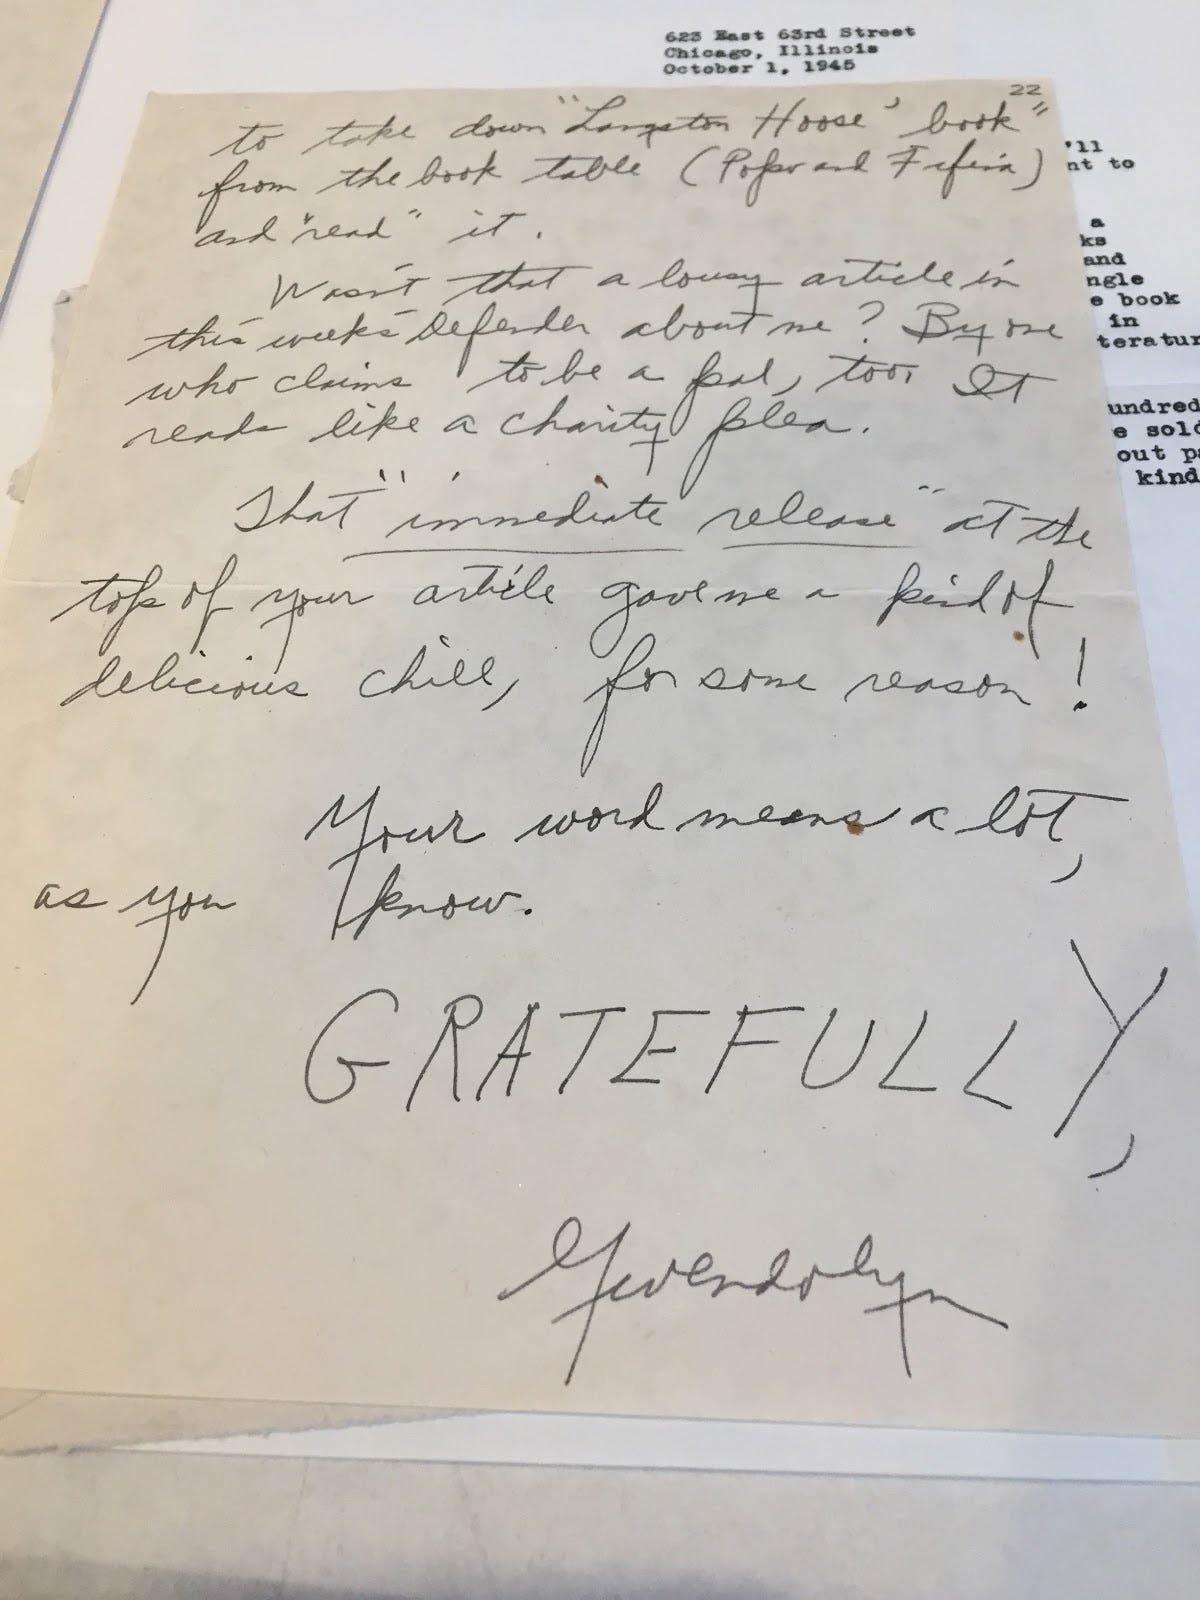 623 East 63rd Street
Chicago, Illinois
October 1, 1945
22
to take down "Langston Hoose' book"
from the book table (Popo and Fifina)
and "read" it.
Wasn't that a lousy article in
this week's Defender about me? By one
who claims to be a pal, too. It
reads like a charity plea.
That "immediate release" at the
top of your article gave me a kind of
delicious chill, for some reason!
Your word means a lot,
as you know.
GRATEFULLY,
Gwendolyn
'll
nt to
a
ks
and
ngle
e book
in
teratur
undred
e sold
out pa
kind